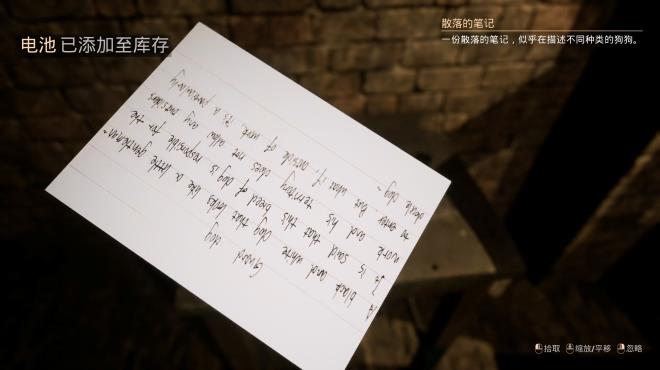 电池 已添加至库存
散落的笔记
一份散落的笔记，似乎在描述不同种类的狗狗。
Guard dog
A black and white dog that looks like a little gentleman~
It is said that this breed of dog is responsible for the
work and his territory does not allow any outsides
to enter. But what if, outside of work, is a particularly
docile dog ~
拾取 缩放/平移 忽略